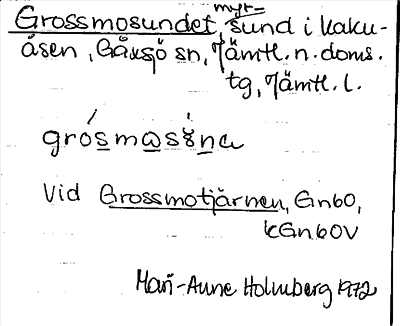 Grossmosundet, myr=sund i Kaku-
åsen, Gåxsjö sn, Jämtl. n. doms.
tg, Jämtl. l.
Vid Grossmotjärnen, Gn60,
kGn60V
Mari-Anne Holmberg 1972